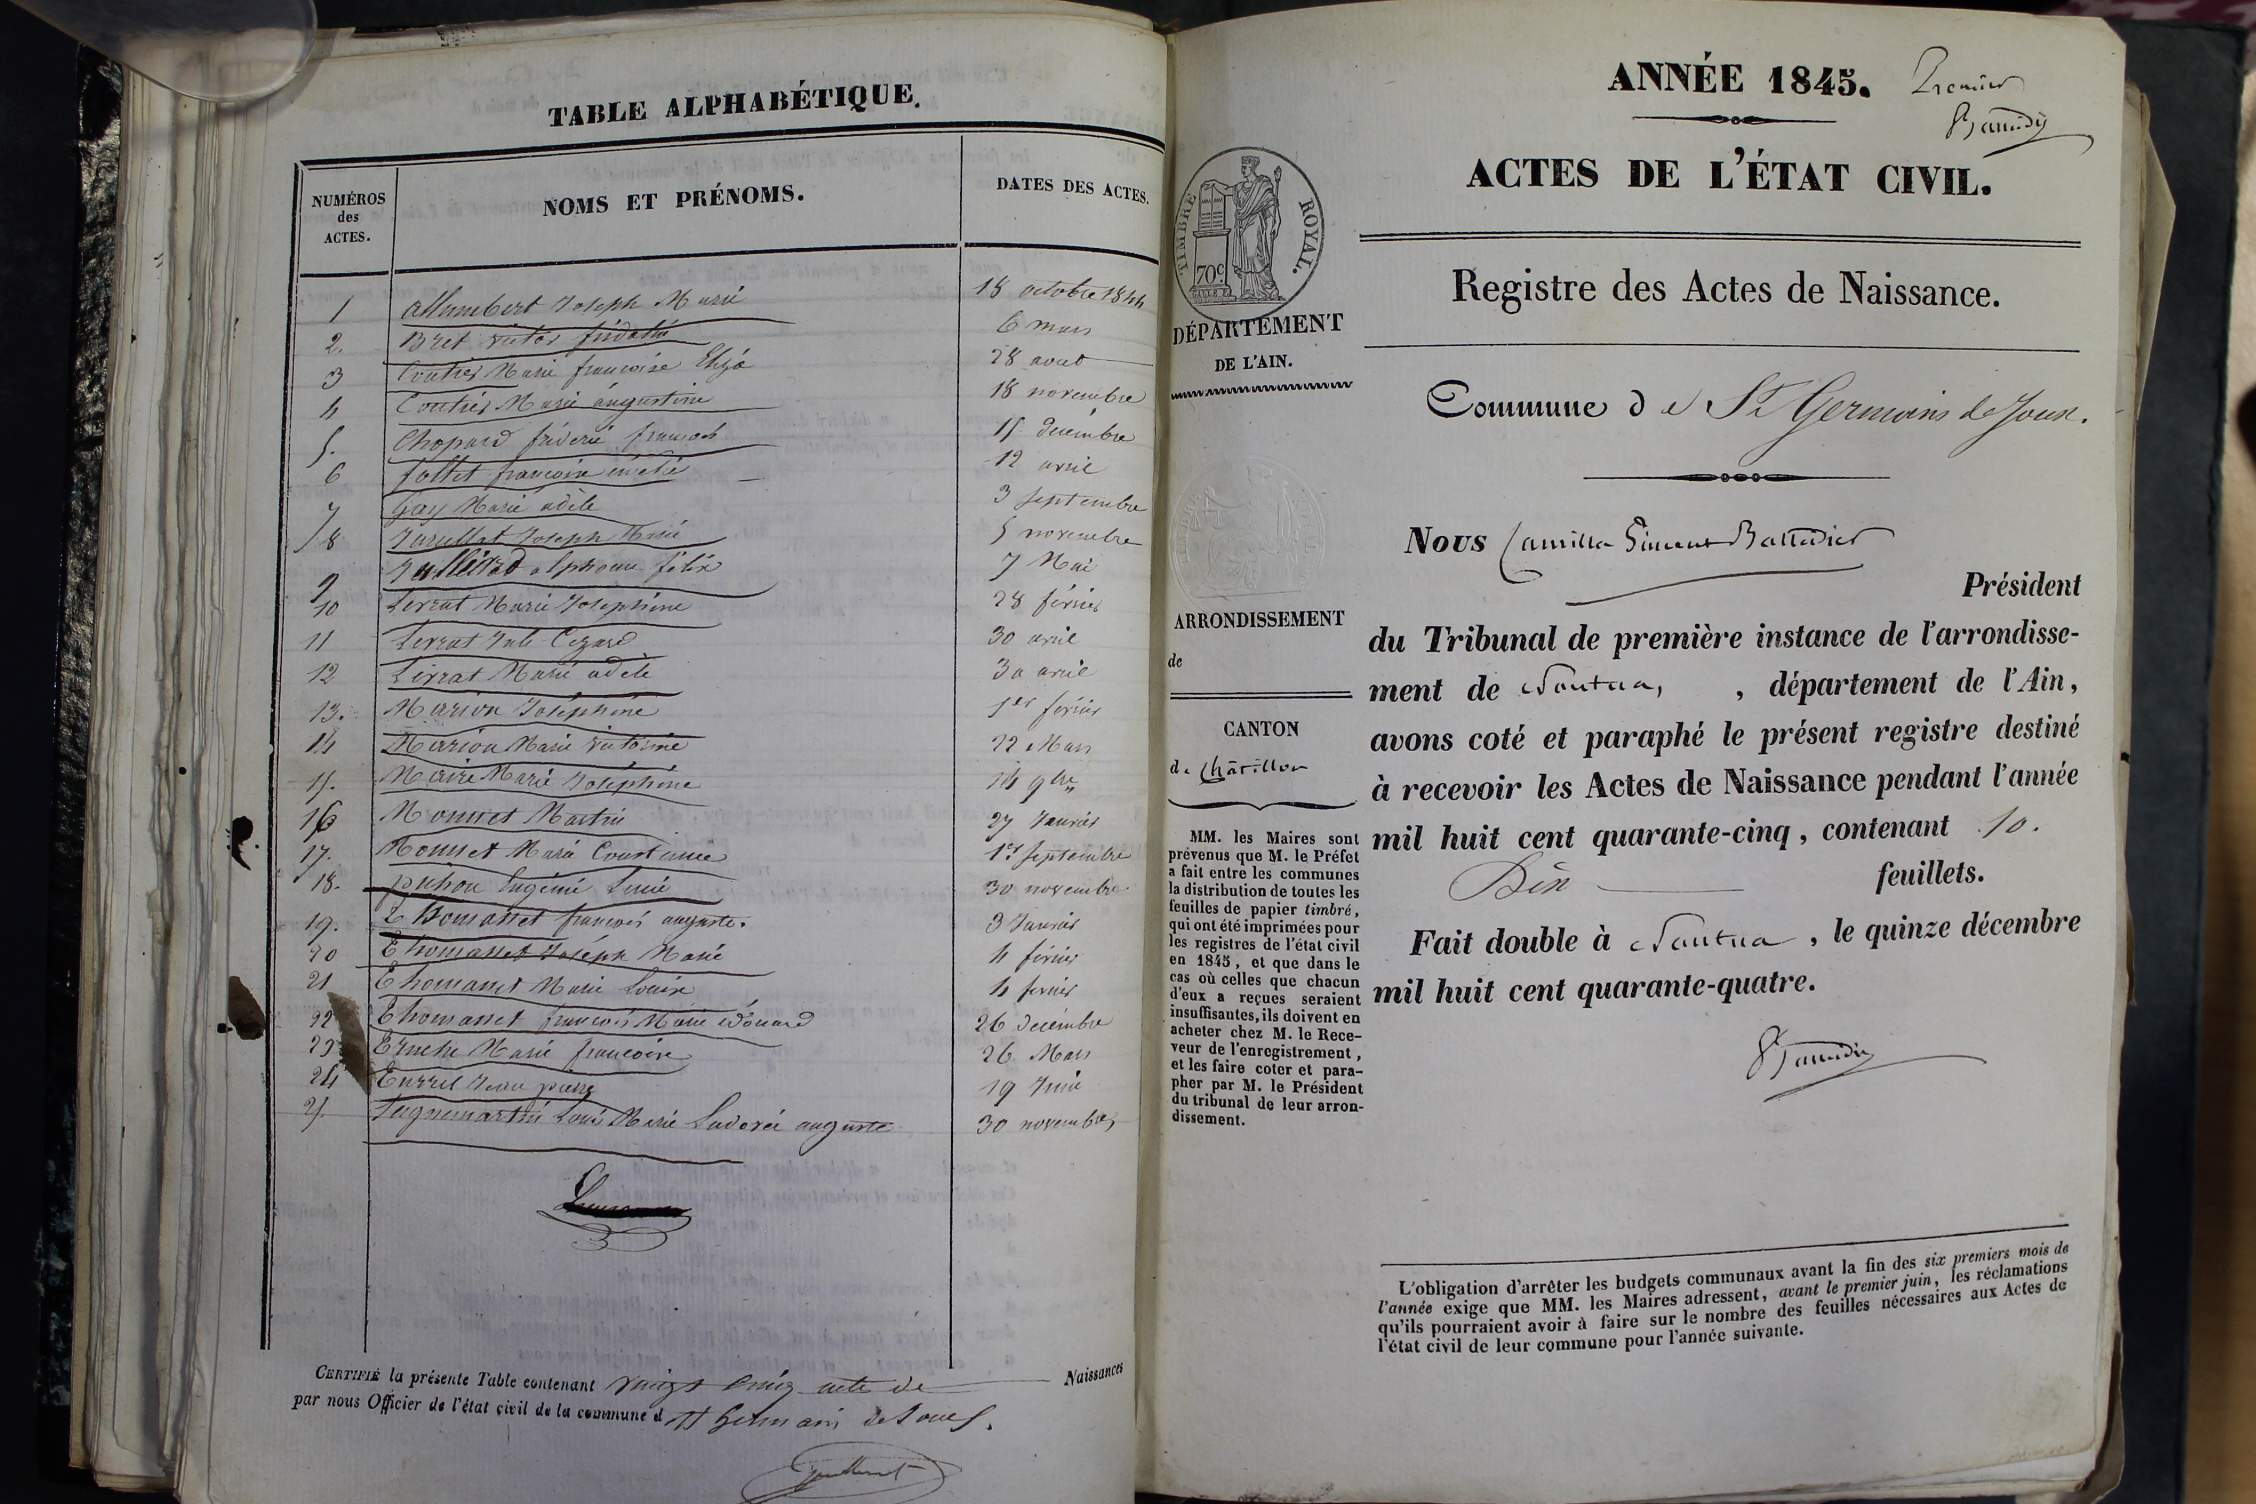 TABLE ALPHABÉTIQUE.
NUMÉROS
des
ACTES.
NOMS ET PRÉNOMS.
DATES DES ACTES.
1 Allumbert Joseph Marie 18 octobre 1844
2. Bret victor 6 mars
3 Coutier Marie françoise Eliza 28 aout
4 Coutier Marie augustine 18 novembre
5. Chopard fréderic françois 15 decembre
6 follet françoise 12 avril
7 Gay Marie adèle 3 septembre
8 Jurullat Joseph Marie 5 novembre
9 alphonse félix 7 Mai
10 Levrat Marie Joséphine 28 février
11 Levrat Jule Cezard 30 avril
12 Levrat Marie adèle 30 avril
13. Marion Joséphine 1er février
14 Marion Marie victorine 22 Mars
15. Marie Joséphine 14 9bre
16 Monnet Martin 27 Janvier
17. Monnet Marie Constancie 1er septembre
18. pichon Eugénie Lucie 30 novembre
19. Thomasset françois auguste. 3 Janvier
20 Thomasset Joseph Marie 4 février
21 Thomasset Marie Louise 4 février
22 Thomasset françois Marie edouard 26 decembre
23 Marie françoise 26 Mars
24 Jean pierre 19 Juin
25. Seignemartin Louis Marie auguste 30 novembre
CERTIFIÉ la présente Table contenant vingt cinq acte de Naissances
par nous Officier de l'état civil de la commune d St Germain de Joux.
ANNÉE 1845. Premier
ACTES DE L'ÉTAT CIVIL.
TIMBRE ROYAL.
70c
DÉPARTEMENT
DE L'AIN.
Registre des Actes de Naissance.
Commune de St Germains de Joux.
Nous Camille
Président
ARRONDISSEMENT
de
CANTON
de Châtillon
du Tribunal de première instance de l'arrondisse-
ment de Nantua, , département de l'Ain,
avons coté et paraphé le présent registre destiné
à recevoir les Actes de Naissance pendant l'année
mil huit cent quarante-cinq, contenant 10.
Dix feuillets.
Fait double à Nantua, le quinze décembre
mil huit cent quarante-quatre.
MM. les Maires sont
prévenus que M. le Préfet
a fait entre les communes
la distribution de toutes les
feuilles de papier timbré,
qui ont été imprimées pour
les registres de l'état civil
en 1845, et que dans le
cas où celles que chacun
d'eux a reçues seraient
insuffisantes, ils doivent en
acheter chez M. le Rece-
veur de l'enregistrement,
et les faire coter et para-
pher par M. le Président
du tribunal de leur arron-
dissement.
L'obligation d'arrêter les budgets communaux avant la fin des six premiers mois de
l'année exige que MM. les Maires adressent, avant le premier juin, les réclamations
qu'ils pourraient avoir à faire sur le nombre des feuilles nécessaires aux Actes de
l'état civil de leur commune pour l'année suivante.